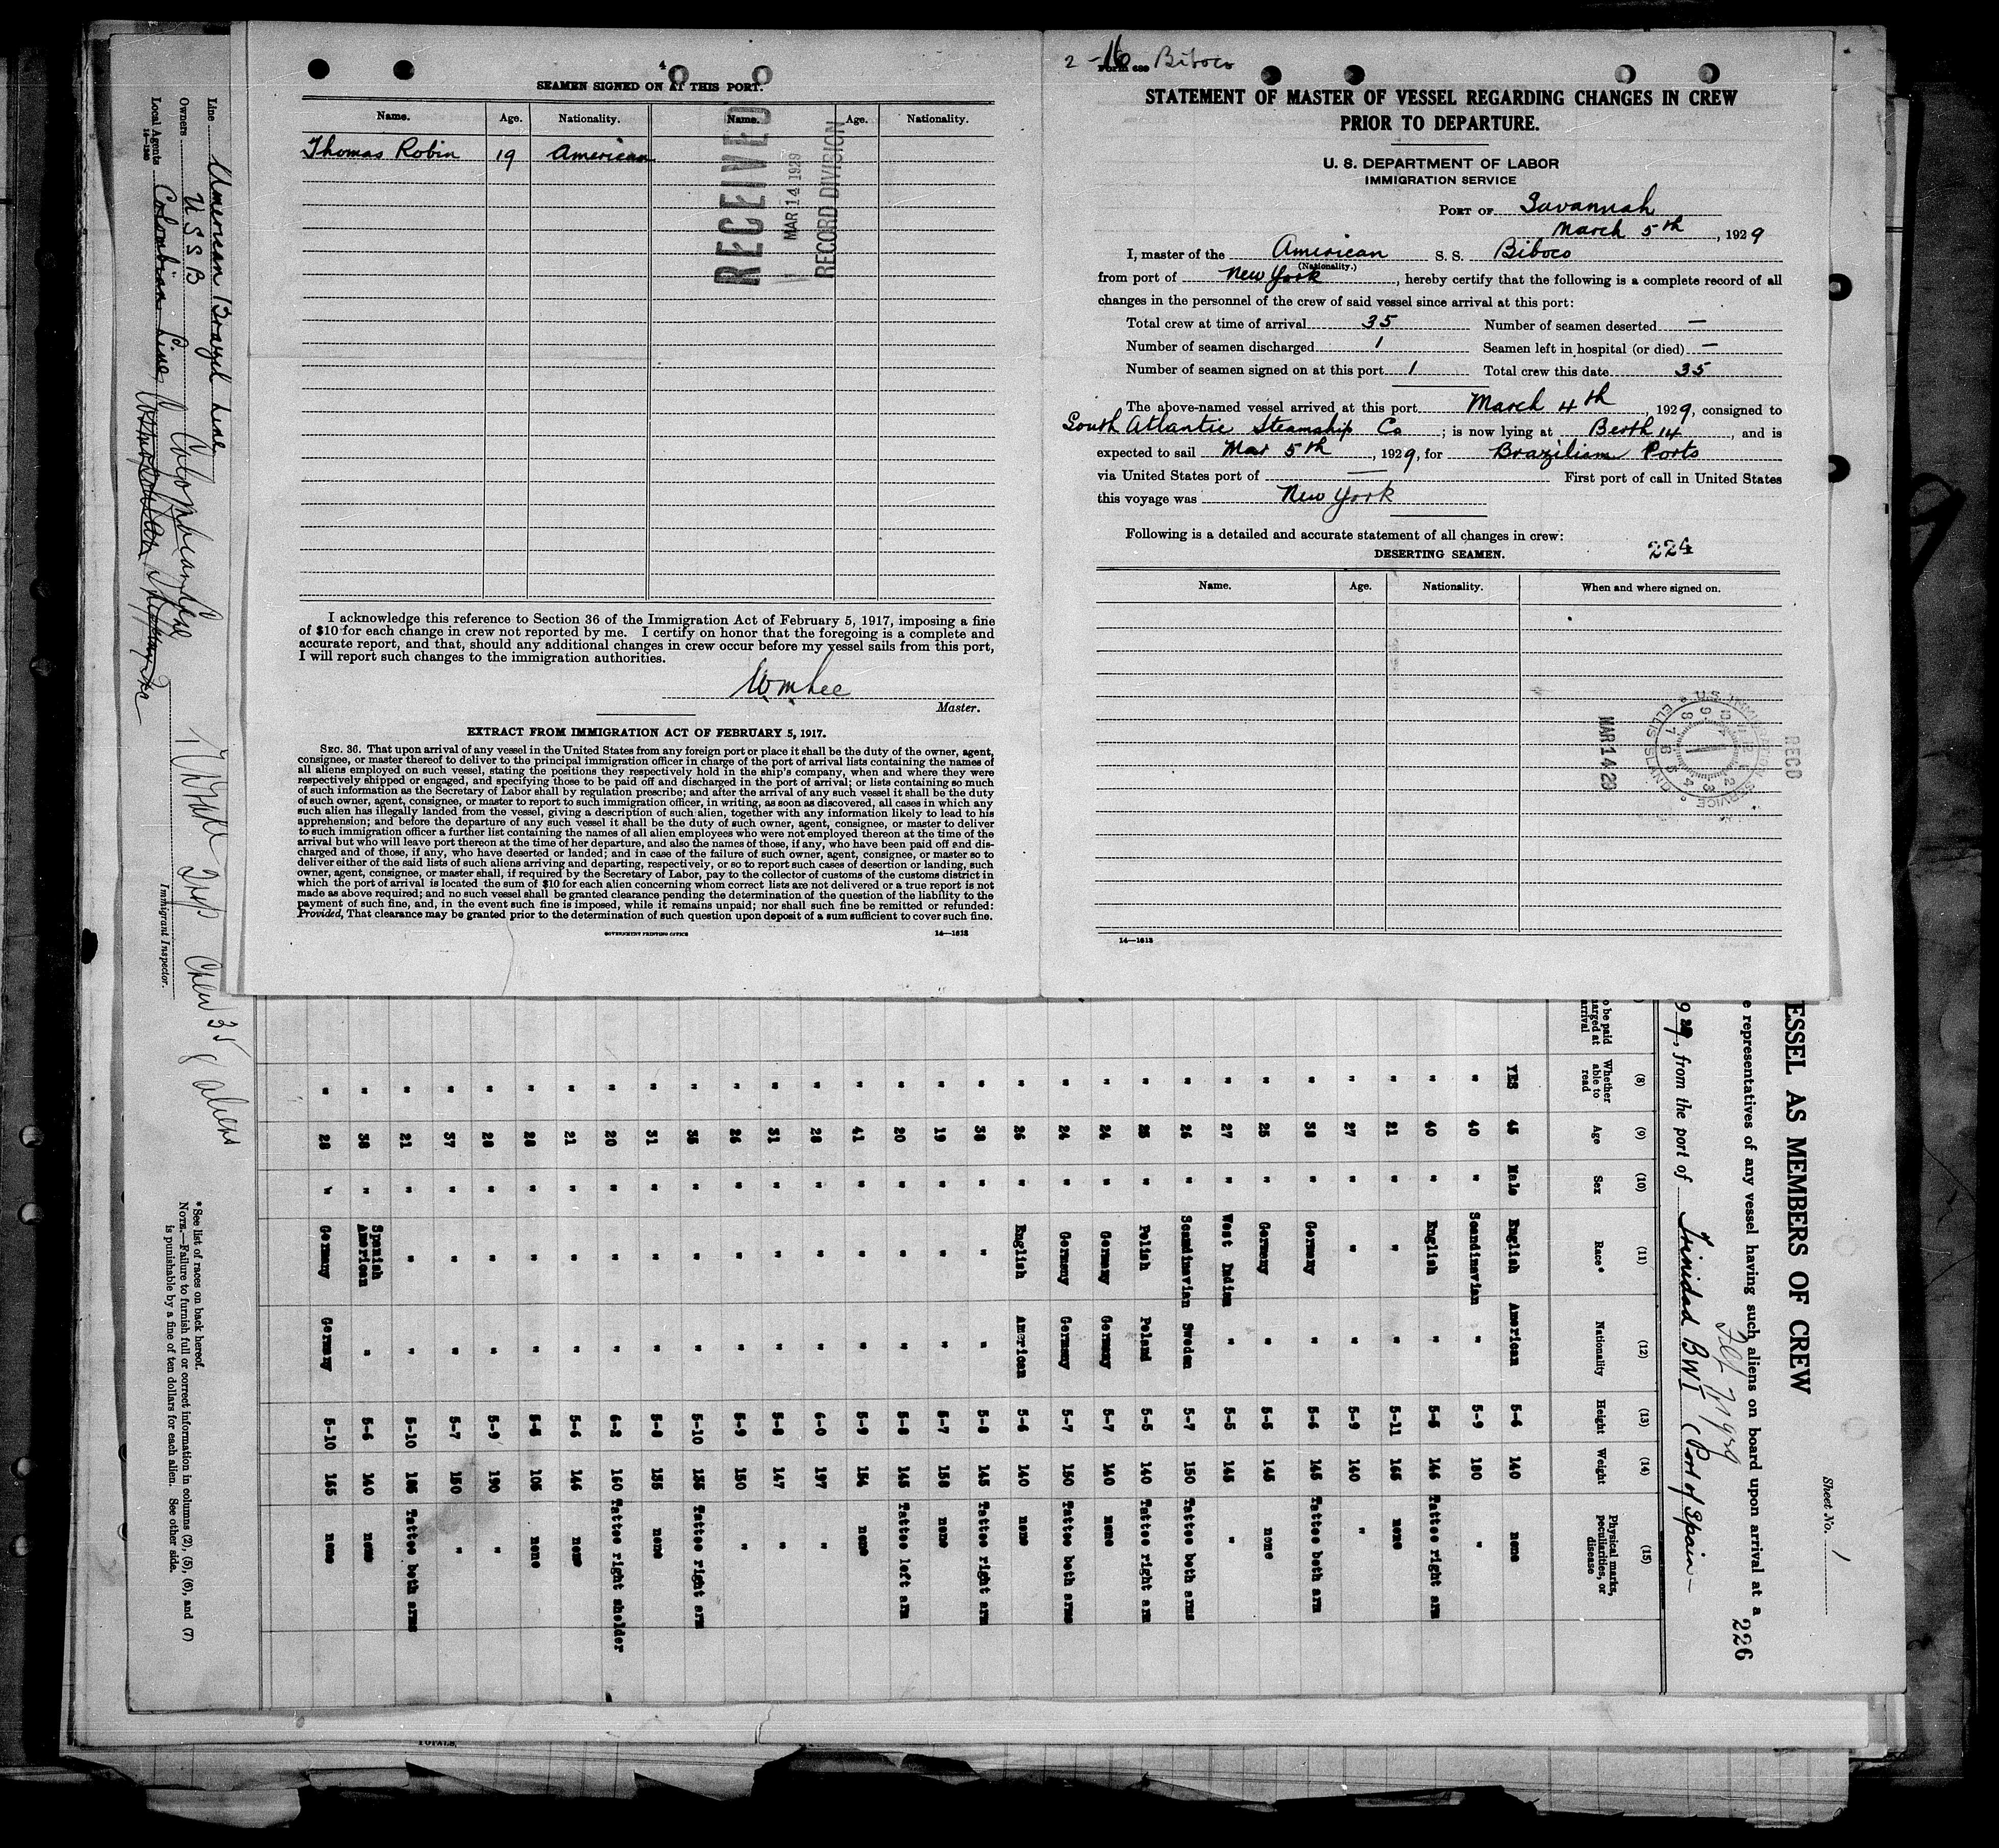 4
SEAMEN SIGNED ON AT THIS PORT.
Name. Age. Nationality. Name. Age. Nationality.
Thomas Robin 19 American
RECEIVED
MAR 14 1929
RECORD DIVISION
I acknowledge this reference to Section 36 of the Immigration Act of February 5, 1917, imposing a fine
of $10 for each change in crew not reported by me. I certify on honor that the foregoing is a complete and
accurate report, and that, should any additional changes in crew occur before my vessel sails from this port,
I will report such changes to the immigration authorities.
Wm Lee
Master.
EXTRACT FROM IMMIGRATION ACT OF FEBRUARY 5, 1917.
SEC. 36. That upon arrival of any vessel in the United States from any foreign port or place it shall be the duty of the owner, agent,
consignee, or master thereof to deliver to the principal immigration officer in charge of the port of arrival lists containing the names of
all aliens employed on such vessel, stating the positions they respectively hold in the ship's company, when and where they were
respectively shipped or engaged, and specifying those to be paid off and discharged in the port of arrival; or lists containing so much
of such information as the Secretary of Labor shall by regulation prescribe; and after the arrival of any such vessel it shall be the duty
of such owner, agent, consignee, or master to report to such immigration officer, in writing, as soon as discovered, all cases in which any
such alien has illegally landed from the vessel, giving a description of such alien, together with any information likely to lead to his
apprehension; and before the departure of any such vessel it shall be the duty of such owner, agent, consignee, or master to deliver
to such immigration officer a further list containing the names of all alien employees who were not employed thereon at the time of the
arrival but who will leave port thereon at the time of her departure, and also the names of those, if any, who have been paid off and dis-
charged and of those, if any, who have deserted or landed; and in case of the failure of such owner, agent, consignee, or master so to
deliver either of the said lists of such aliens arriving and departing, respectively, or so to report such cases of desertion or landing, such
owner, agent, consignee, or master shall, if required by the Secretary of Labor, pay to the collector of customs of the customs district in
which the port of arrival is located the sum of $10 for each alien concerning whom correct lists are not delivered or a true report is not
made as above required; and no such vessel shall be granted clearance pending the determination of the question of the liability to the
payment of such fine, and, in the event such fine is imposed, while it remains unpaid; nor shall such fine be remitted or refunded:
Provided, That clearance may be granted prior to the determination of such question upon deposit of a sum sufficient to cover such fine.
GOVERNMENT PRINTING OFFICE 14—1613
2 - 16 Biboco
Form 689
STATEMENT OF MASTER OF VESSEL REGARDING CHANGES IN CREW
PRIOR TO DEPARTURE.
U. S. DEPARTMENT OF LABOR
IMMIGRATION SERVICE
PORT OF Savannah
March 5th, 1929
I, master of the American S. S. Biboco
(Nationality.)
from port of New York, hereby certify that the following is a complete record of all
changes in the personnel of the crew of said vessel since arrival at this port:
Total crew at time of arrival 35 Number of seamen deserted —
Number of seamen discharged 1 Seamen left in hospital (or died) —
Number of seamen signed on at this port 1 Total crew this date 35
The above-named vessel arrived at this port March 4th, 1929, consigned to
South Atlantic Steamship Co; is now lying at Berth 14, and is
expected to sail Mar 5th, 1929, for Brazilian Ports
via United States port of — First port of call in United States
this voyage was New York
Following is a detailed and accurate statement of all changes in crew:
224
DESERTING SEAMEN.
Name. Age. Nationality. When and where signed on.
MAR 14 29
U.S. IMMIGRATION SERVICE ELLIS ISLAND
RECD
14—1613
Line American Brazil Line
Owners U S S B
Local Agents Colombian Line
14—1240
Immigrant Inspector.
Crew 35
8 aliens
* See list of races on back hereof.
NOTE.—Failure to furnish full or correct information in columns (2), (5), (6), and (7)
is punishable by a fine of ten dollars for each alien. See other side.
Sheet No. 1
ESSEL AS MEMBERS OF CREW
e representatives of any vessel having such aliens on board upon arrival at a
226
29, from the port of Trinidad BWI (Port of Spain—
(8) (9) (10) (11) (12) (13) (14) (15)
o be paid arged at arrival Whether able to read Age Sex Race* Nationality Height Weight Physical marks, peculiarities, or disease
YES 45 Male English American 5-6 140 none
" 40 " Scandinavian " 5-9 180 "
" 40 " English " 5-8 146 Tattoo right arm
" 21 " " " 5-11 165 none
" 27 " " " 5-9 140 "
" 38 " Germany " 5-6 145 Tattoo both arm
" 25 " Germany " 5-5 145 none
" 27 " West Indien " 5-5 145 "
" 26 " Scandinavian Sweden 5-7 150 Tattoo both arms
" 25 " Polish Poland 5-5 140 Tattoo right arm
" 24 " Germany Germany 5-7 140 none
" 24 " Germany Germany 5-7 150 Tattoo both arms
" 26 " English American 5-6 140 none
" 38 " " " 5-8 145 Tattoo right arm
" 19 " " " 5-7 158 none
" 20 " " " 5-8 145 Tattoo left arm
" 41 " " " 5-9 154 none
" 28 " " " 6-0 197 "
" 31 " " " 5-8 147 "
" 26 " " " 5-9 150 "
" 35 " " " 5-10 155 Tattoo right arm
" 31 " " " 5-8 135 none
" 20 " " " 6-2 160 Tattoo right sholder
" 21 " " " 5-6 146 none
" 28 " " " 5-5 105 none
" 28 " " " 5-9 190 "
" 37 " " " 5-7 150 "
" 21 " " " 5-10 185 Tattoo both arms
" 38 " Spanish American " 5-6 140 none
" 28 " Germany Germany 5-10 165 none
TOTALS.